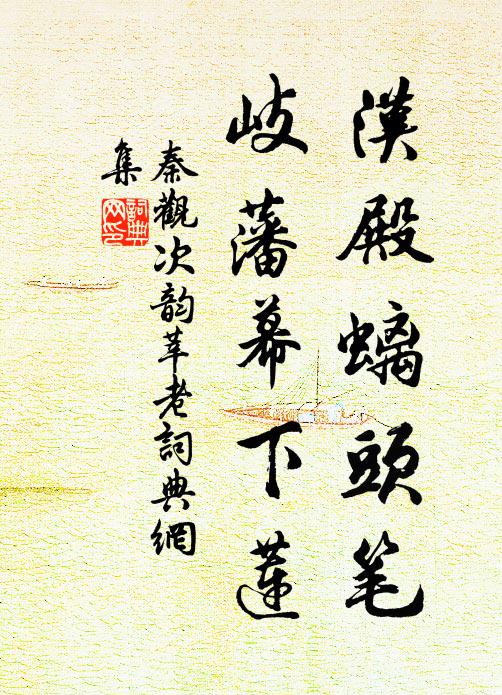 漢殿螭頭笔
岐藩幕下蓮
秦觀次韵莘老詞典網
集
詞典
网印